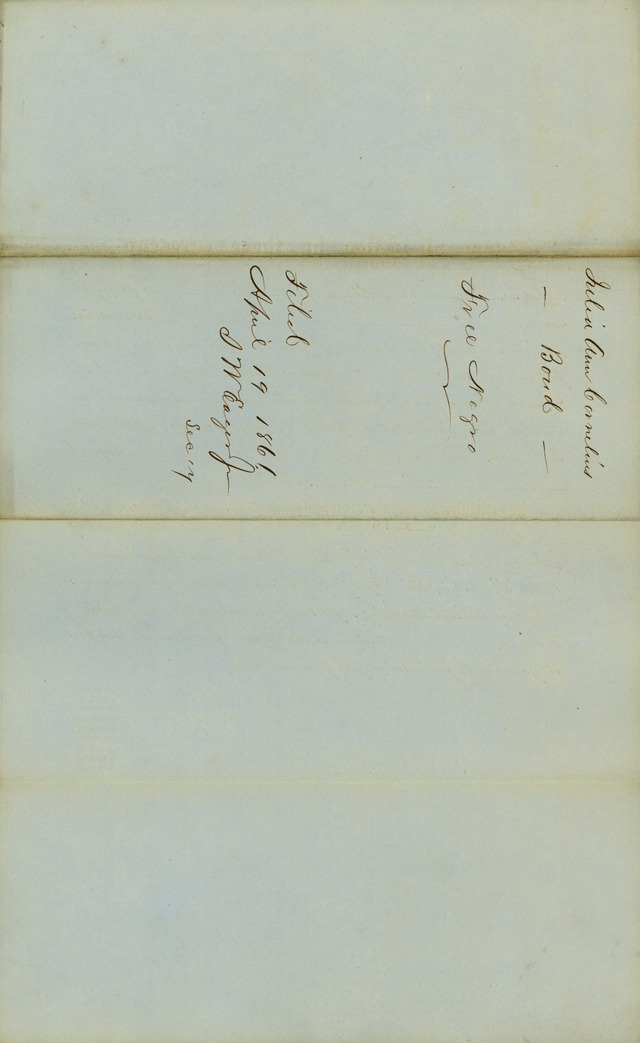 Julia Ann Cornelius
— Bond —
Free Negro
Filed
April 19 1861
J W
Secry